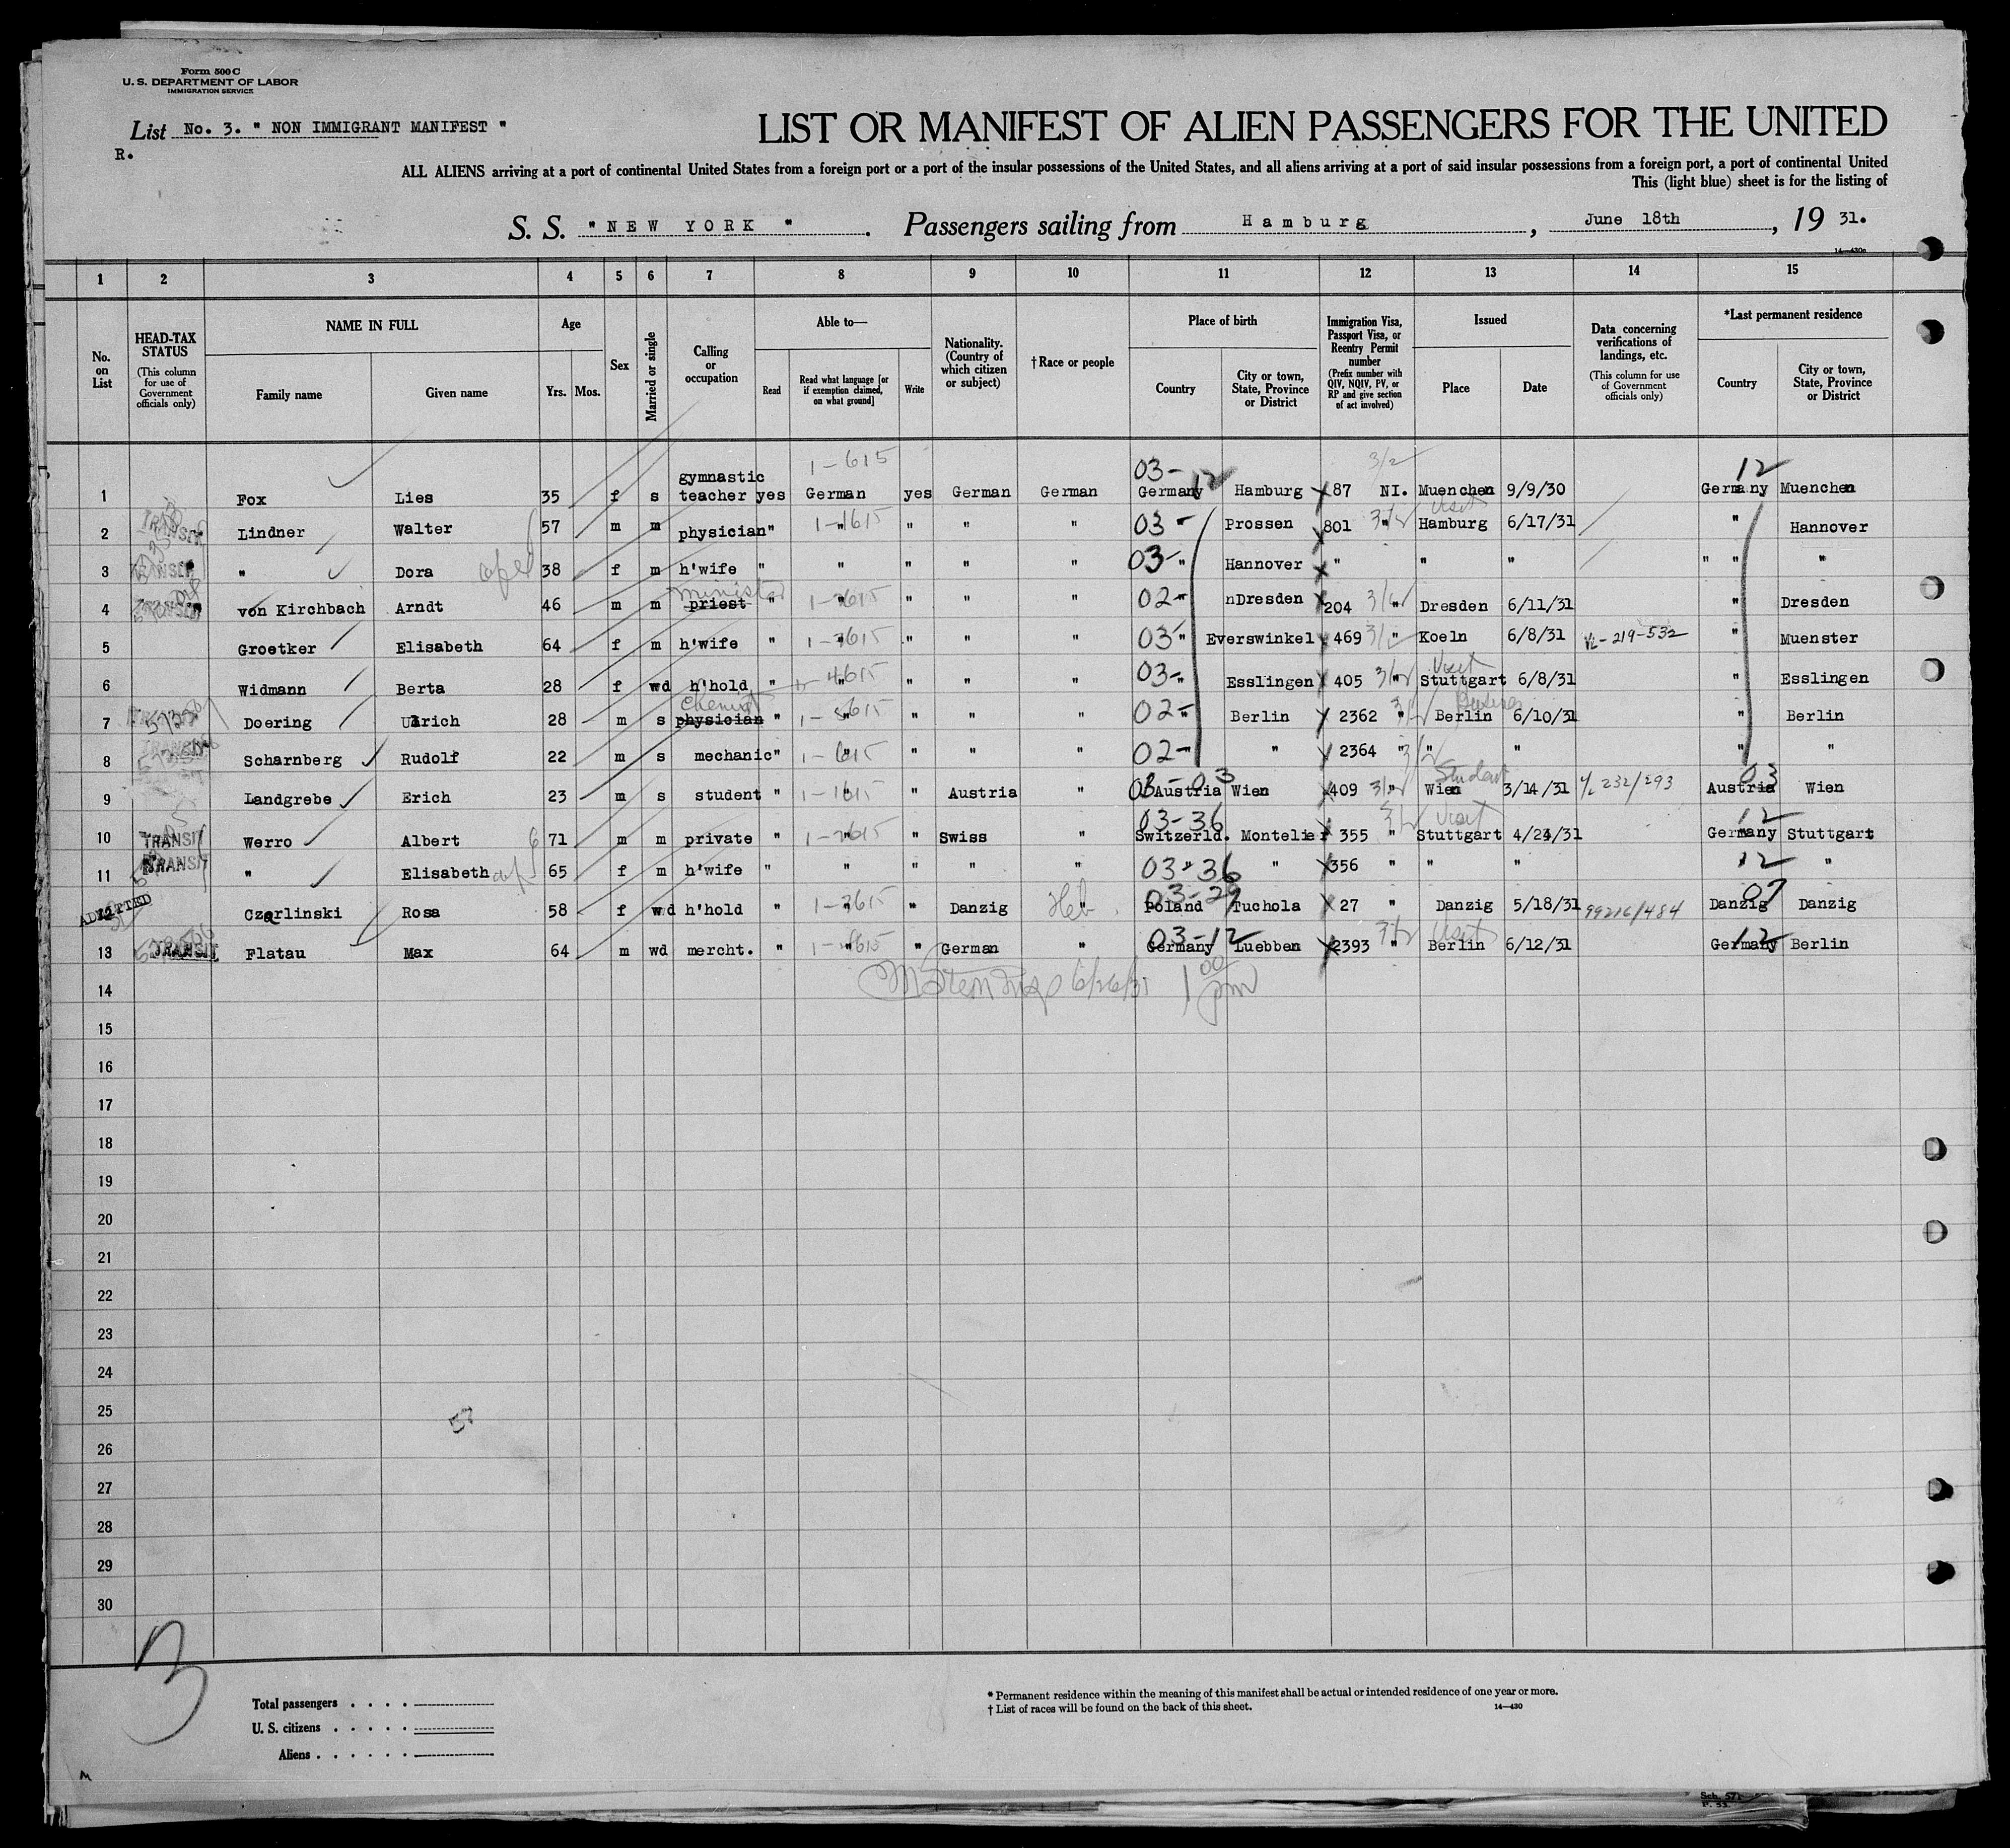 Form 500 C
U. S. DEPARTMENT OF LABOR
IMMIGRATION SERVICE
List No. 3. " NON IMMIGRANT MANIFEST "
R.
LIST OR MANIFEST OF ALIEN PASSENGERS FOR THE UNITED
ALL ALIENS arriving at a port of continental United States from a foreign port or a port of the insular possessions of the United States, and all aliens arriving at a port of said insular possessions from a foreign port, a port of continental United
This (light blue) sheet is for the listing of
S. S. " NEW YORK ". Passengers sailing from Hamburg, June 18th, 19 31.
14—430a
1 2 3 4 5 6 7 8 9 10 11 12 13 14 15
No. on List
HEAD-TAX STATUS (This column for use of Government officials only)
NAME IN FULL
Family name
Given name
Age
Yrs. Mos.
Sex
Married or single
Calling or occupation
Able to—
Read
Read what language [or if exemption claimed, on what ground]
Write
Nationality. (Country of which citizen or subject)
† Race or people
Place of birth
Country
City or town, State, Province or District
Immigration Visa, Passport Visa, or Reentry Permit number (Prefix number with QIV, NQIV, PV, or RP and give section of act involved)
Issued
Place
Date
Data concerning verifications of landings, etc. (This column for use of Government officials only)
*Last permanent residence
Country
City or town, State, Province or District
1-615 03-12 3/2 12
1 Fox Lies 35 f s gymnastic teacher yes German yes German German Germany Hamburg 87 NI. Muenchen 9/9/30 Germany Muenchen
2 TRANSIT Lindner Walter 57 m m physician " 1-615 " " " " 03 " Prossen 801 " 3/2 Hamburg Visit 6/17/31 " Hannover
3 TRANSIT " Dora 38 f m h'wife " " " " " 03 " Hannover " " " " " "
4 TRANSIT von Kirchbach Arndt 46 m m priest minister " " " " " 02 " nDresden 204 3/2 " Dresden 6/11/31 Dresden
5 Groetker Elisabeth 64 f m h'wife " " " " " 03 " Everswinkel 469 3/2 " Koeln 6/8/31 V/L-219-532 " Muenster
6 Widmann Berta 28 f wd h'hold " " " " " 03 " Esslingen 405 3/2 " Stuttgart Visit 6/8/31 " Esslingen
7 Doering Ulrich 28 m s physician Chemist " " " " " 02 " Berlin 2362 3/2 Berlin Business 6/10/31 " Berlin
8 TRANSIT Scharnberg Rudolf 22 m s mechanic " 1-615 " " " " 02 " " 2364 " 3/2 " " " "
9 Landgrebe Erich 23 m s student " 1-615 " " Austria " 03 Austria Wien 409 3/2 " Wien Student 3/14/31 V/L 232/293 03 Austria Wien
10 TRANSIT Werro Albert 71 m m private " " " Swiss " 03-36 Switzerld. Montelier 355 3/2 " Stuttgart Visit 4/24/31 12 Germany Stuttgart
11 TRANSIT " Elisabeth 65 f m h'wife " " " " " 03-36 " " 356 " " " 12 "
12 ADMITTED Czarlinski Rosa 58 f wd h'hold " " " Danzig " Heb. 03-29 Poland Tuchola 27 " Danzig 5/18/31 99216/484 07 Danzig Danzig
13 TRANSIT Flatau Max 64 m wd mercht. " " " German " 03-12 Germany Luebben 2393 3/2 Berlin Visit 6/12/31 12 Germany Berlin
14 6/26/31 1 00 pm
15
16
17
18
19
20
21
22
23
24
25
57
26
27
28
29
30
3
Total passengers . . . .
U. S. citizens . . . . .
Aliens . . . . . .
* Permanent residence within the meaning of this manifest shall be actual or intended residence of one year or more.
† List of races will be found on the back of this sheet.
14—430
M